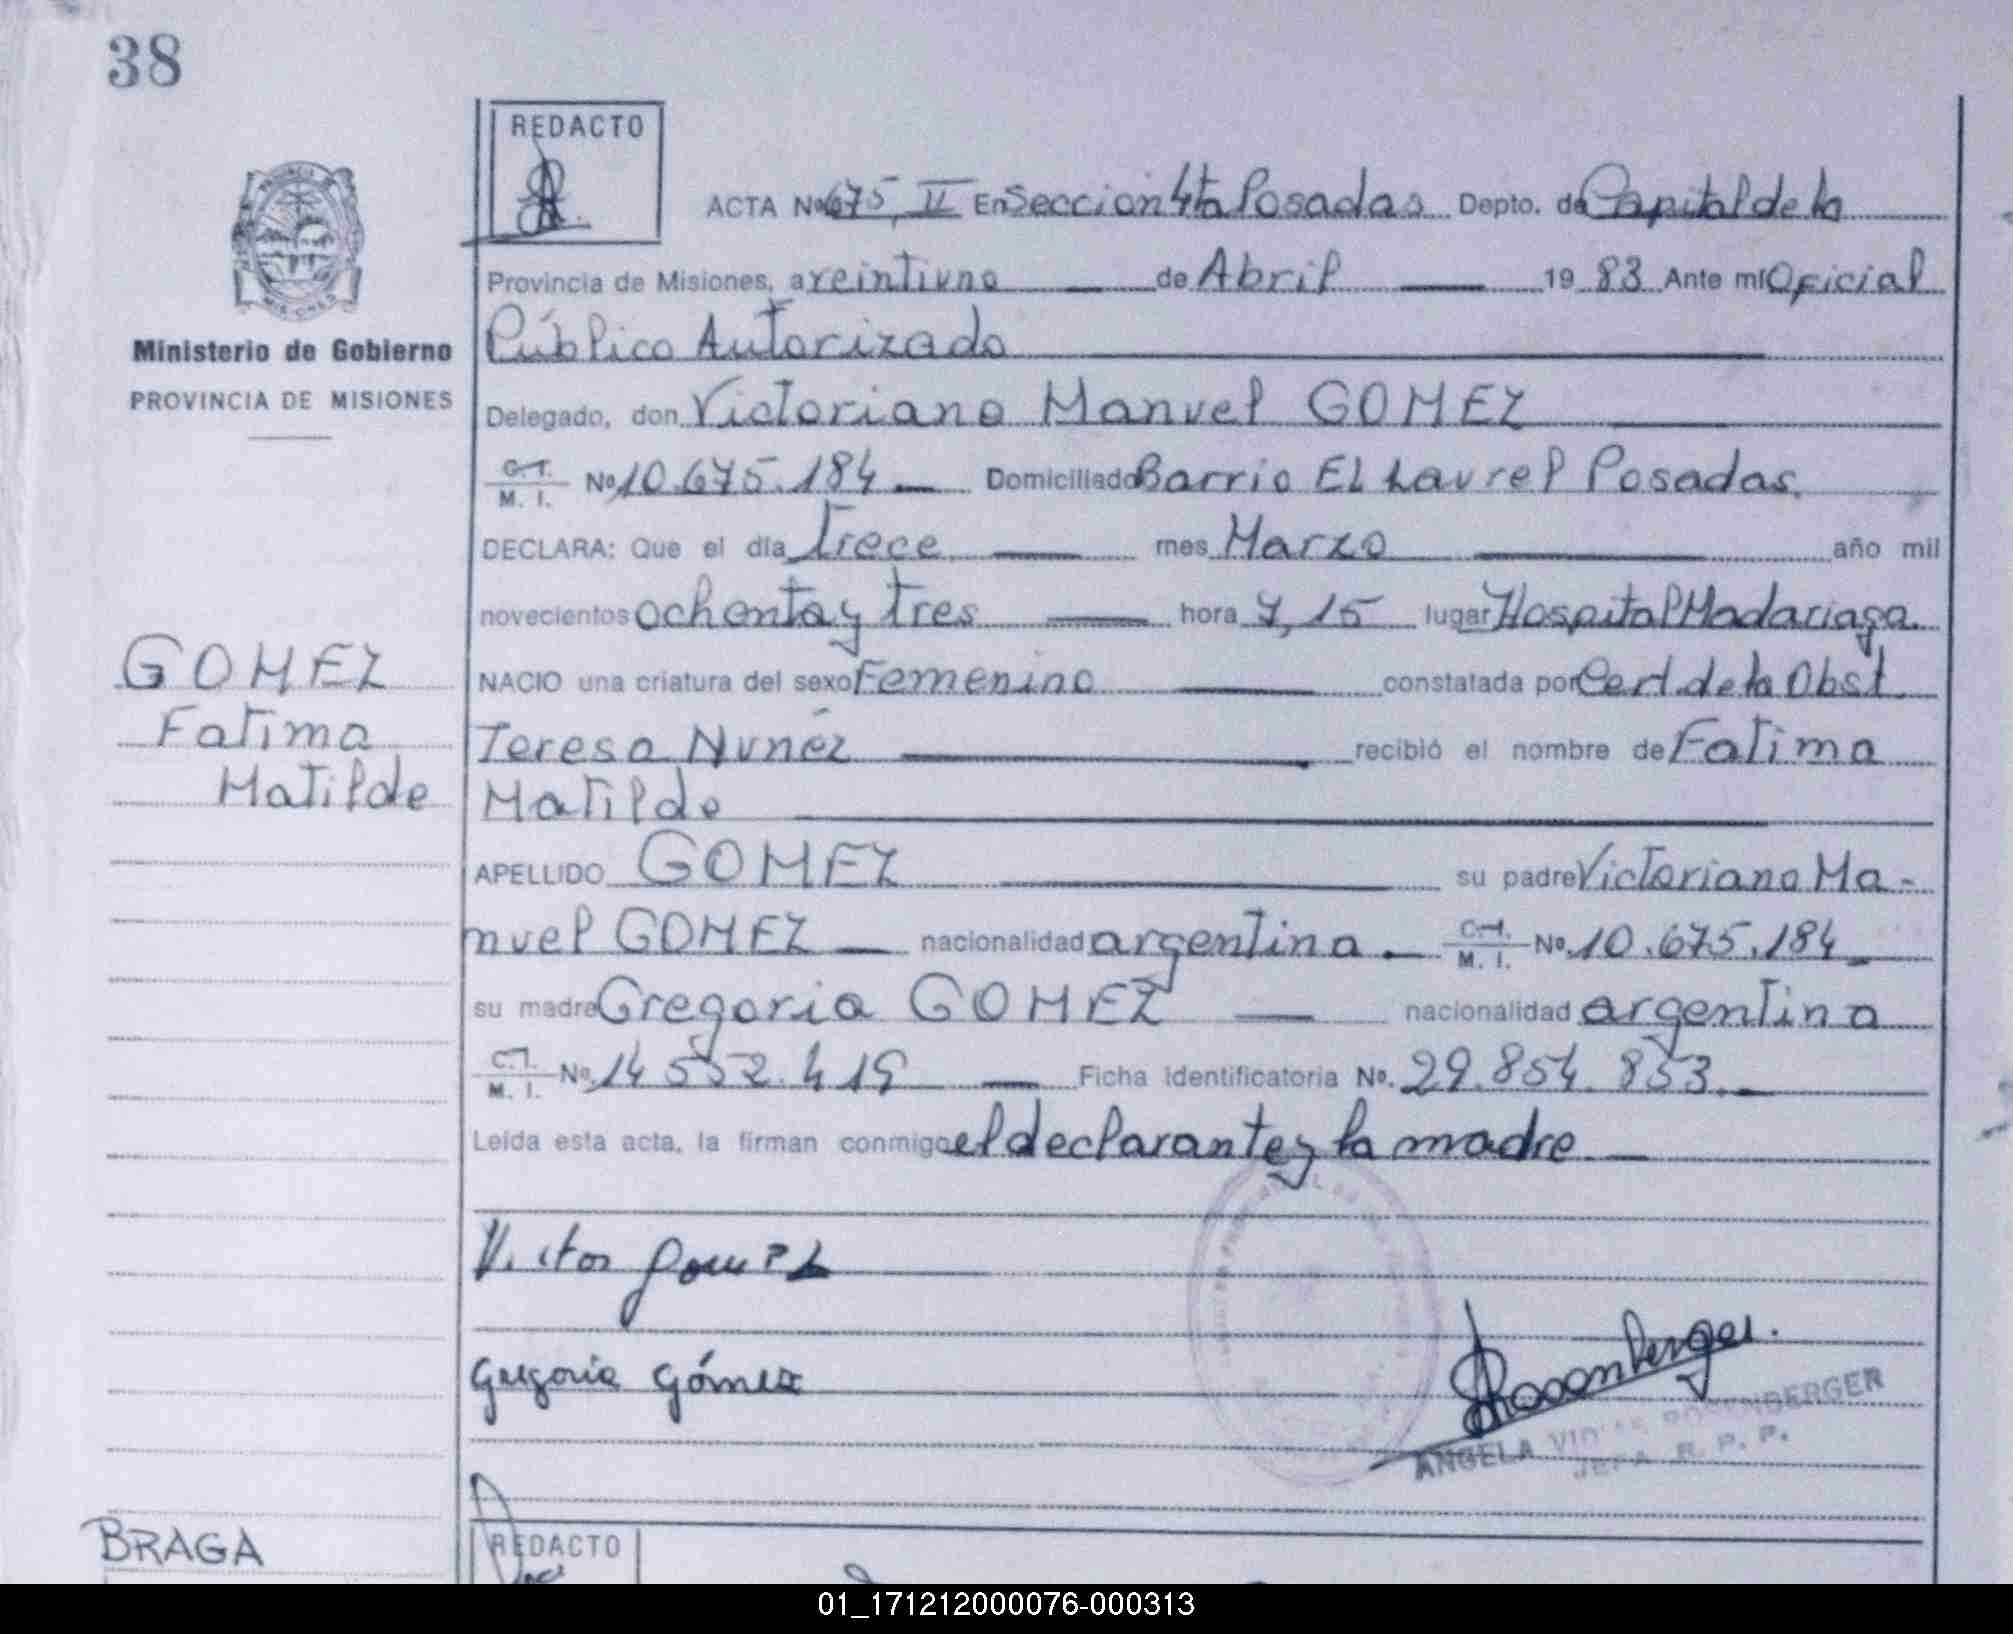 38
REDACTO
ACTA No 675, II En Seccion 4ta Posadas Depto. de Capital de la
Provincia de Misiones, a veintiuno de Abril 19 83 Ante mí Oficial
Público Autorizado
Ministerio de Gobierno
PROVINCIA DE MISIONES
Delegado, don Victoriano Manuel GOMEZ
C. I.
M. I. No 10.675.184 Domiciliado Barrio El Laurel Posadas.
DECLARA: Que el día Trece mes Marzo año mil
novecientos ochenta y Tres hora 7,15 lugar Hospital Madariaga
NACIO una criatura del sexo Femenino constatada por Cert. de la Obst
Teresa Nuñez recibió el nombre de Fatima
Matilde
GOMEZ
Fatima
Matilde
APELLIDO GOMEZ su padre Victoriano Ma-
nuel GOMEZ nacionalidad argentina C. I.
M. I. No. 10.675.184
su madre Gregoria GOMEZ nacionalidad argentina
C. I.
M. I. No. 14 552.419 Ficha Identificatoria No. 29.854.853
Leída esta acta, la firman conmigo el declarante y la madre
Victor Gomez
Gregoria Gómez
Rosenberger.
ANGELA ROSENBERGER
JEFA R. P. P.
BRAGA
REDACTO
01_171212000076-000313